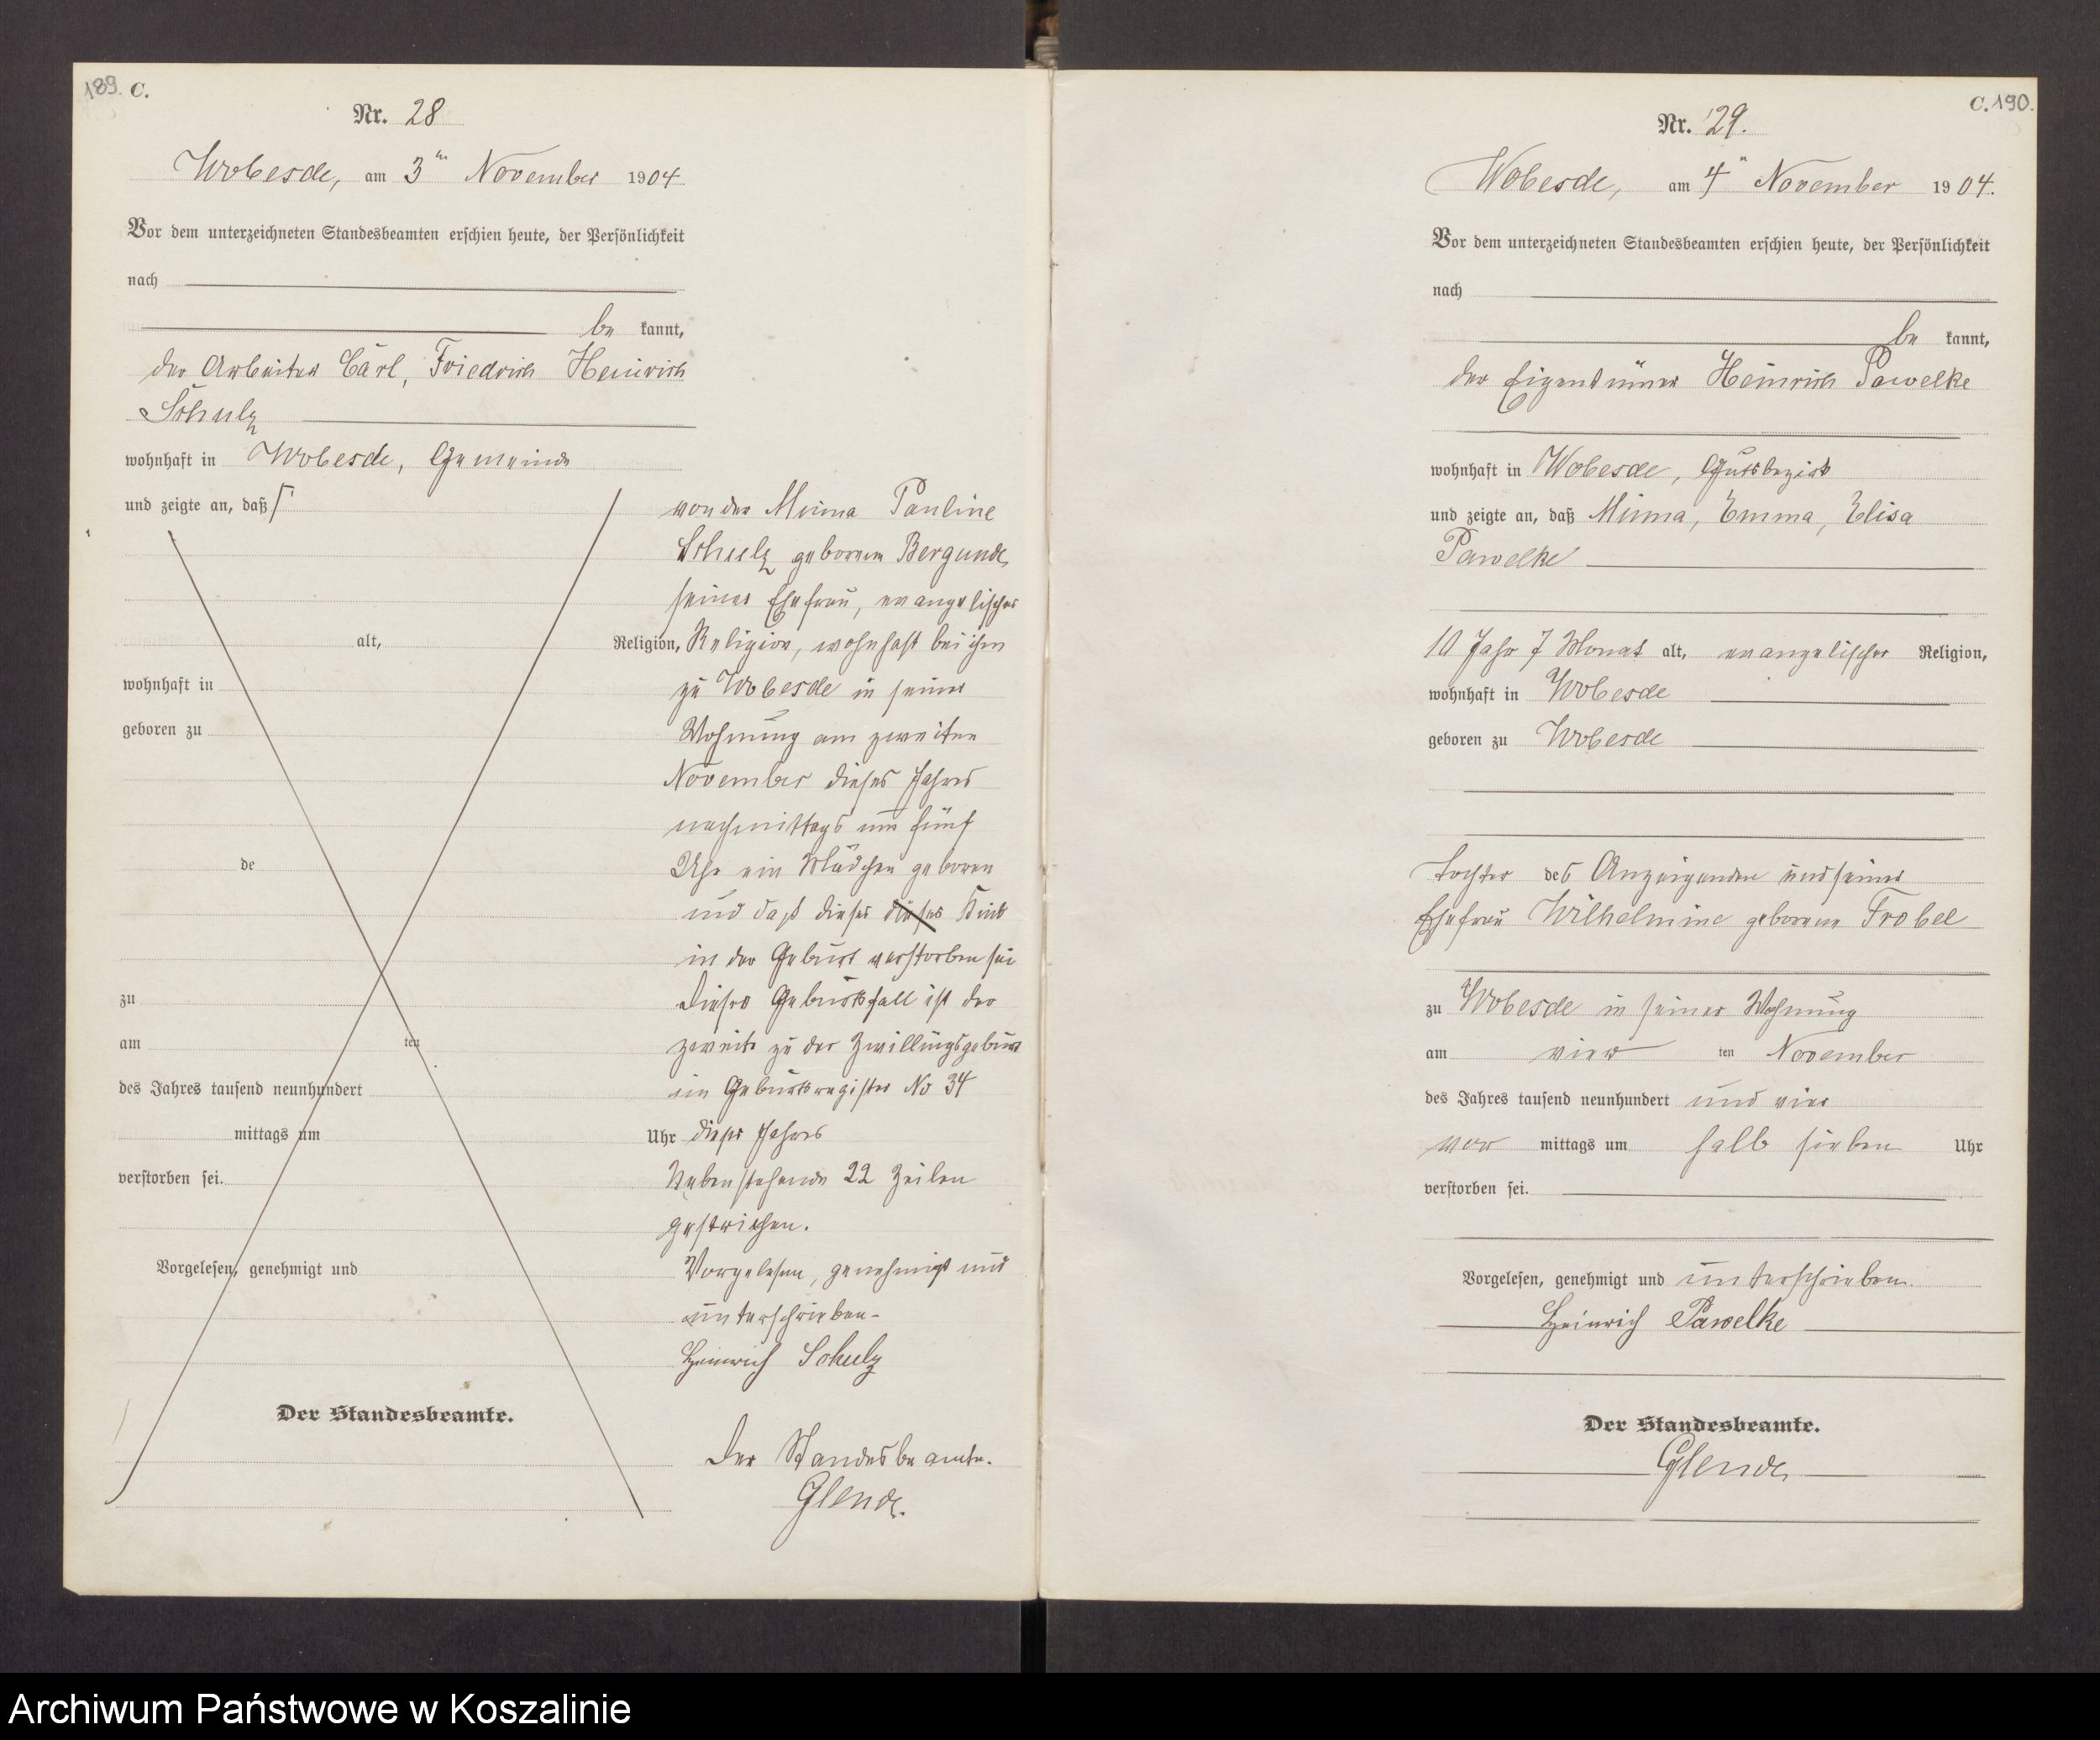 189. C.
Nr. 28
Wobesde, am 3ten November 1904
Vor dem unterzeichneten Standesbeamten erschien heute, der Persönlichkeit
nach
be kannt,
der Arbeiter Carl, Friedrich Heinrich
Schulz
wohnhaft in Wobesde, Gemeinde
und zeigte an, daß
von der Minna Pauline
Schulz geborenen Bergunde,
seiner Ehefrau, evangelischer
alt, Religion, Religion, wohnhaft bei ihm
wohnhaft in zu Wobesde in seiner
geboren zu Wohnung am zweiten
November dieses Jahres
nachmittags um fünf
de Uhr ein Mädchen geboren
und daß dieses dieses Kind
in der Geburt verstorben sei
zu Dieser Geburtsfall ist der
am ten zweite zu der Zwillingsgeburt
des Jahres tausend neunhundert im Geburtsregister No 34
mittags um Uhr dieses Jahres
verstorben sei. Nebenstehende 22 Zeilen
gestrichen.
Vorgelesen, genehmigt und Vorgelesen, genehmigt und
unterschrieben-
Heinrich Schulz
Der Standesbeamte.
Der Standesbeamte.
Glende.
C. 190.
Nr. 29.
Wobesde, am 4" November 1904.
Vor dem unterzeichneten Standesbeamten erschien heute, der Persönlichkeit
nach
be kannt,
der Eigentümer Heinrich Pawelke
wohnhaft in Wobesde, Gutsbezirk
und zeigte an, daß Minna, Emma, Elisa
Pawelke
10 Jahr 7 Monat alt, evangelischer Religion,
wohnhaft in Wobesde
geboren zu Wobesde
Tochter des Anzeigenden und seiner
Ehefrau Wilhelmine geborenen Frobel
zu Wobesde in seiner Wohnung
am vier ten November
des Jahres tausend neunhundert und vier
vor mittags um halb sieben Uhr
verstorben sei.
Vorgelesen, genehmigt und unterschrieben.
Heinrich Pawelke
Der Standesbeamte.
Glende
Archiwum Państwowe w Koszalinie